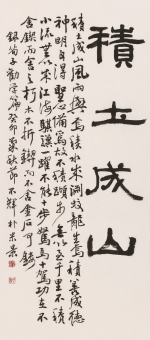 積土成山
積土成山風雨興焉積水成淵蛟龍生焉積善成德
神明自得聖心備焉故不積蹞步無以至千里不積
小流無以成江海騏驥一躍不能十步駑馬十駕功在不
舍鍥而舍之朽木不折鍥而不舍金石可鏤
荀子勸學篇癸卯